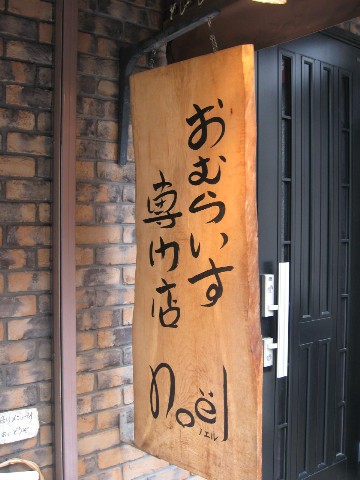 おむらいす
専門店
noël
ノエル